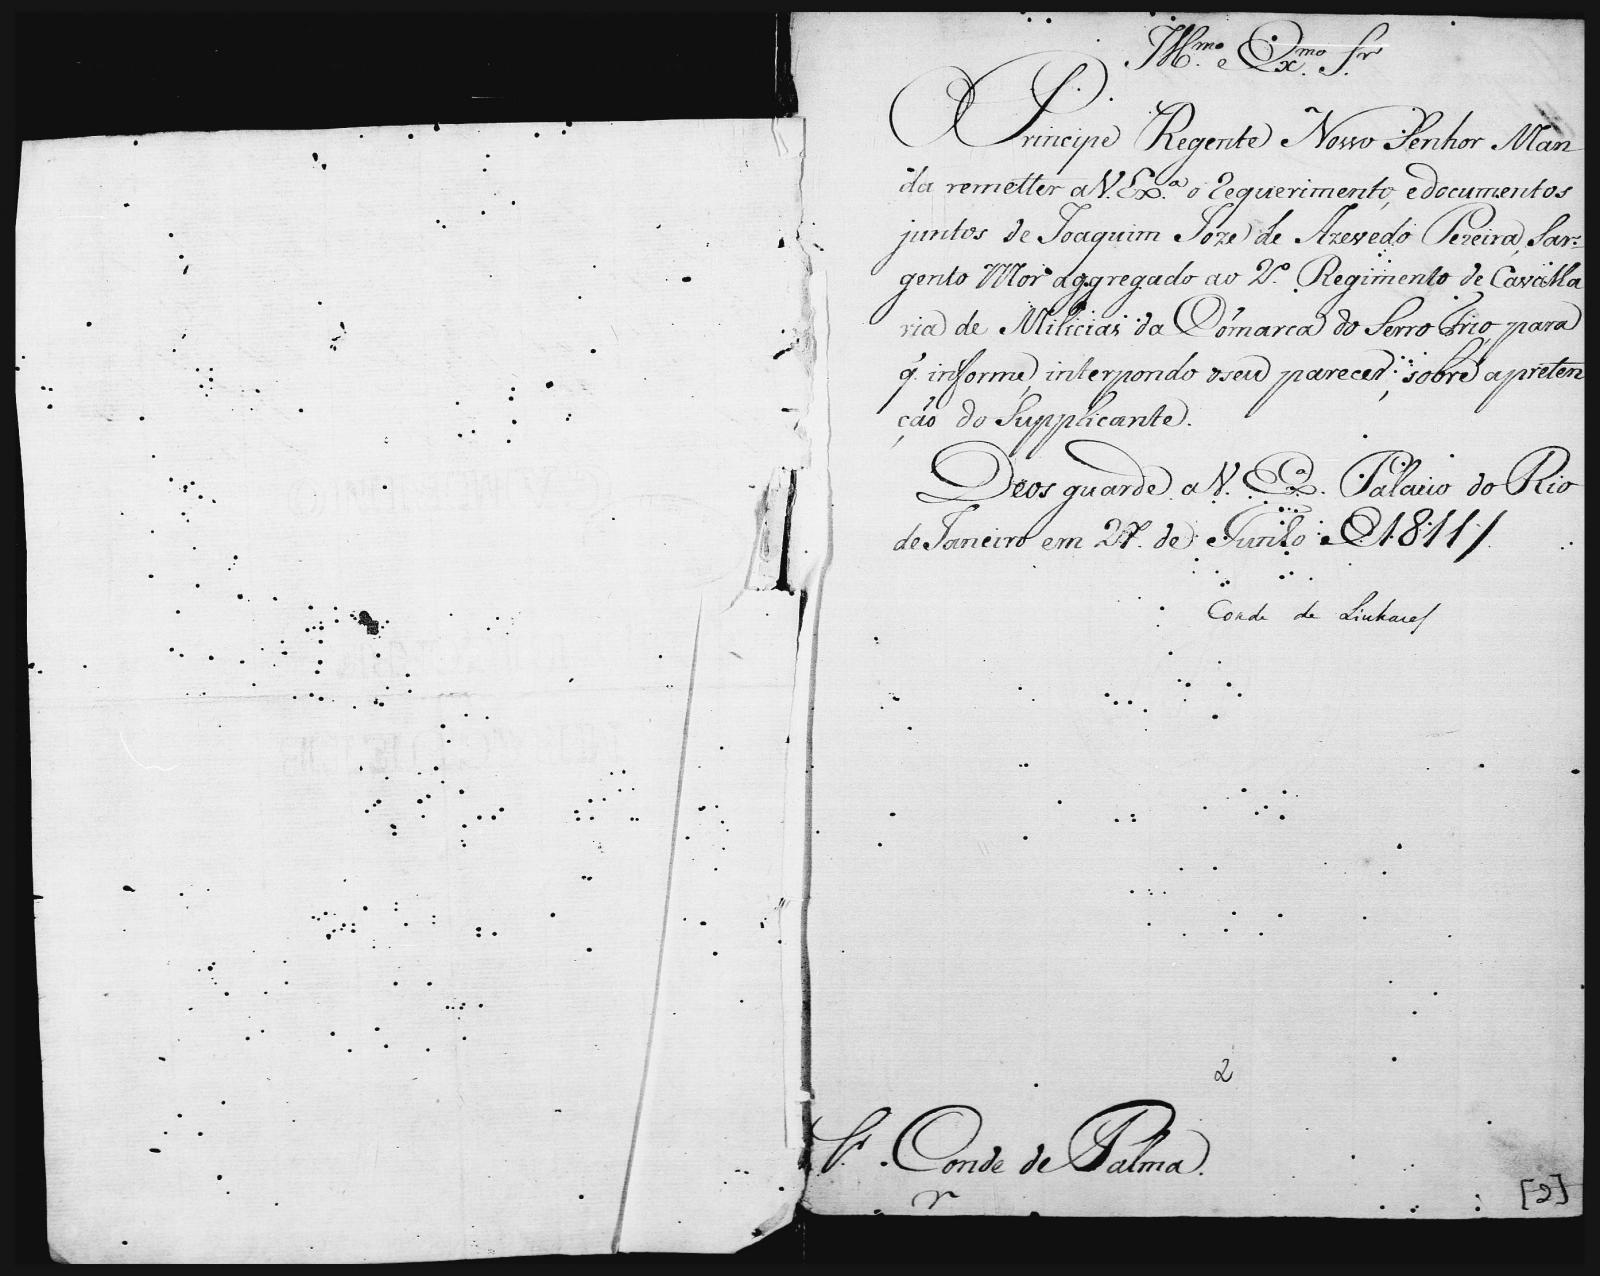 Ill.mo e Ex.mo Sr.
O Principe Regente Nosso Senhor Man
da remetter a V. Ex.a o Requerimento, e documentos
juntos de Joaquim Joze de Azevedo Pereira, Sar-
gento Mor aggregado ao 2.o Regimento de Cavalla
ria de Milicias da Comarca do Serro Frio, para
q. informe, interpondo o seu parecer, sobre a preten
ção do Supplicante.
Deos guarde a V. Ex.a Palacio do Rio
de Janeiro em 27. de Junho de 1811
Conde de Linhares
2
Sr. Conde de Palma.
[2]